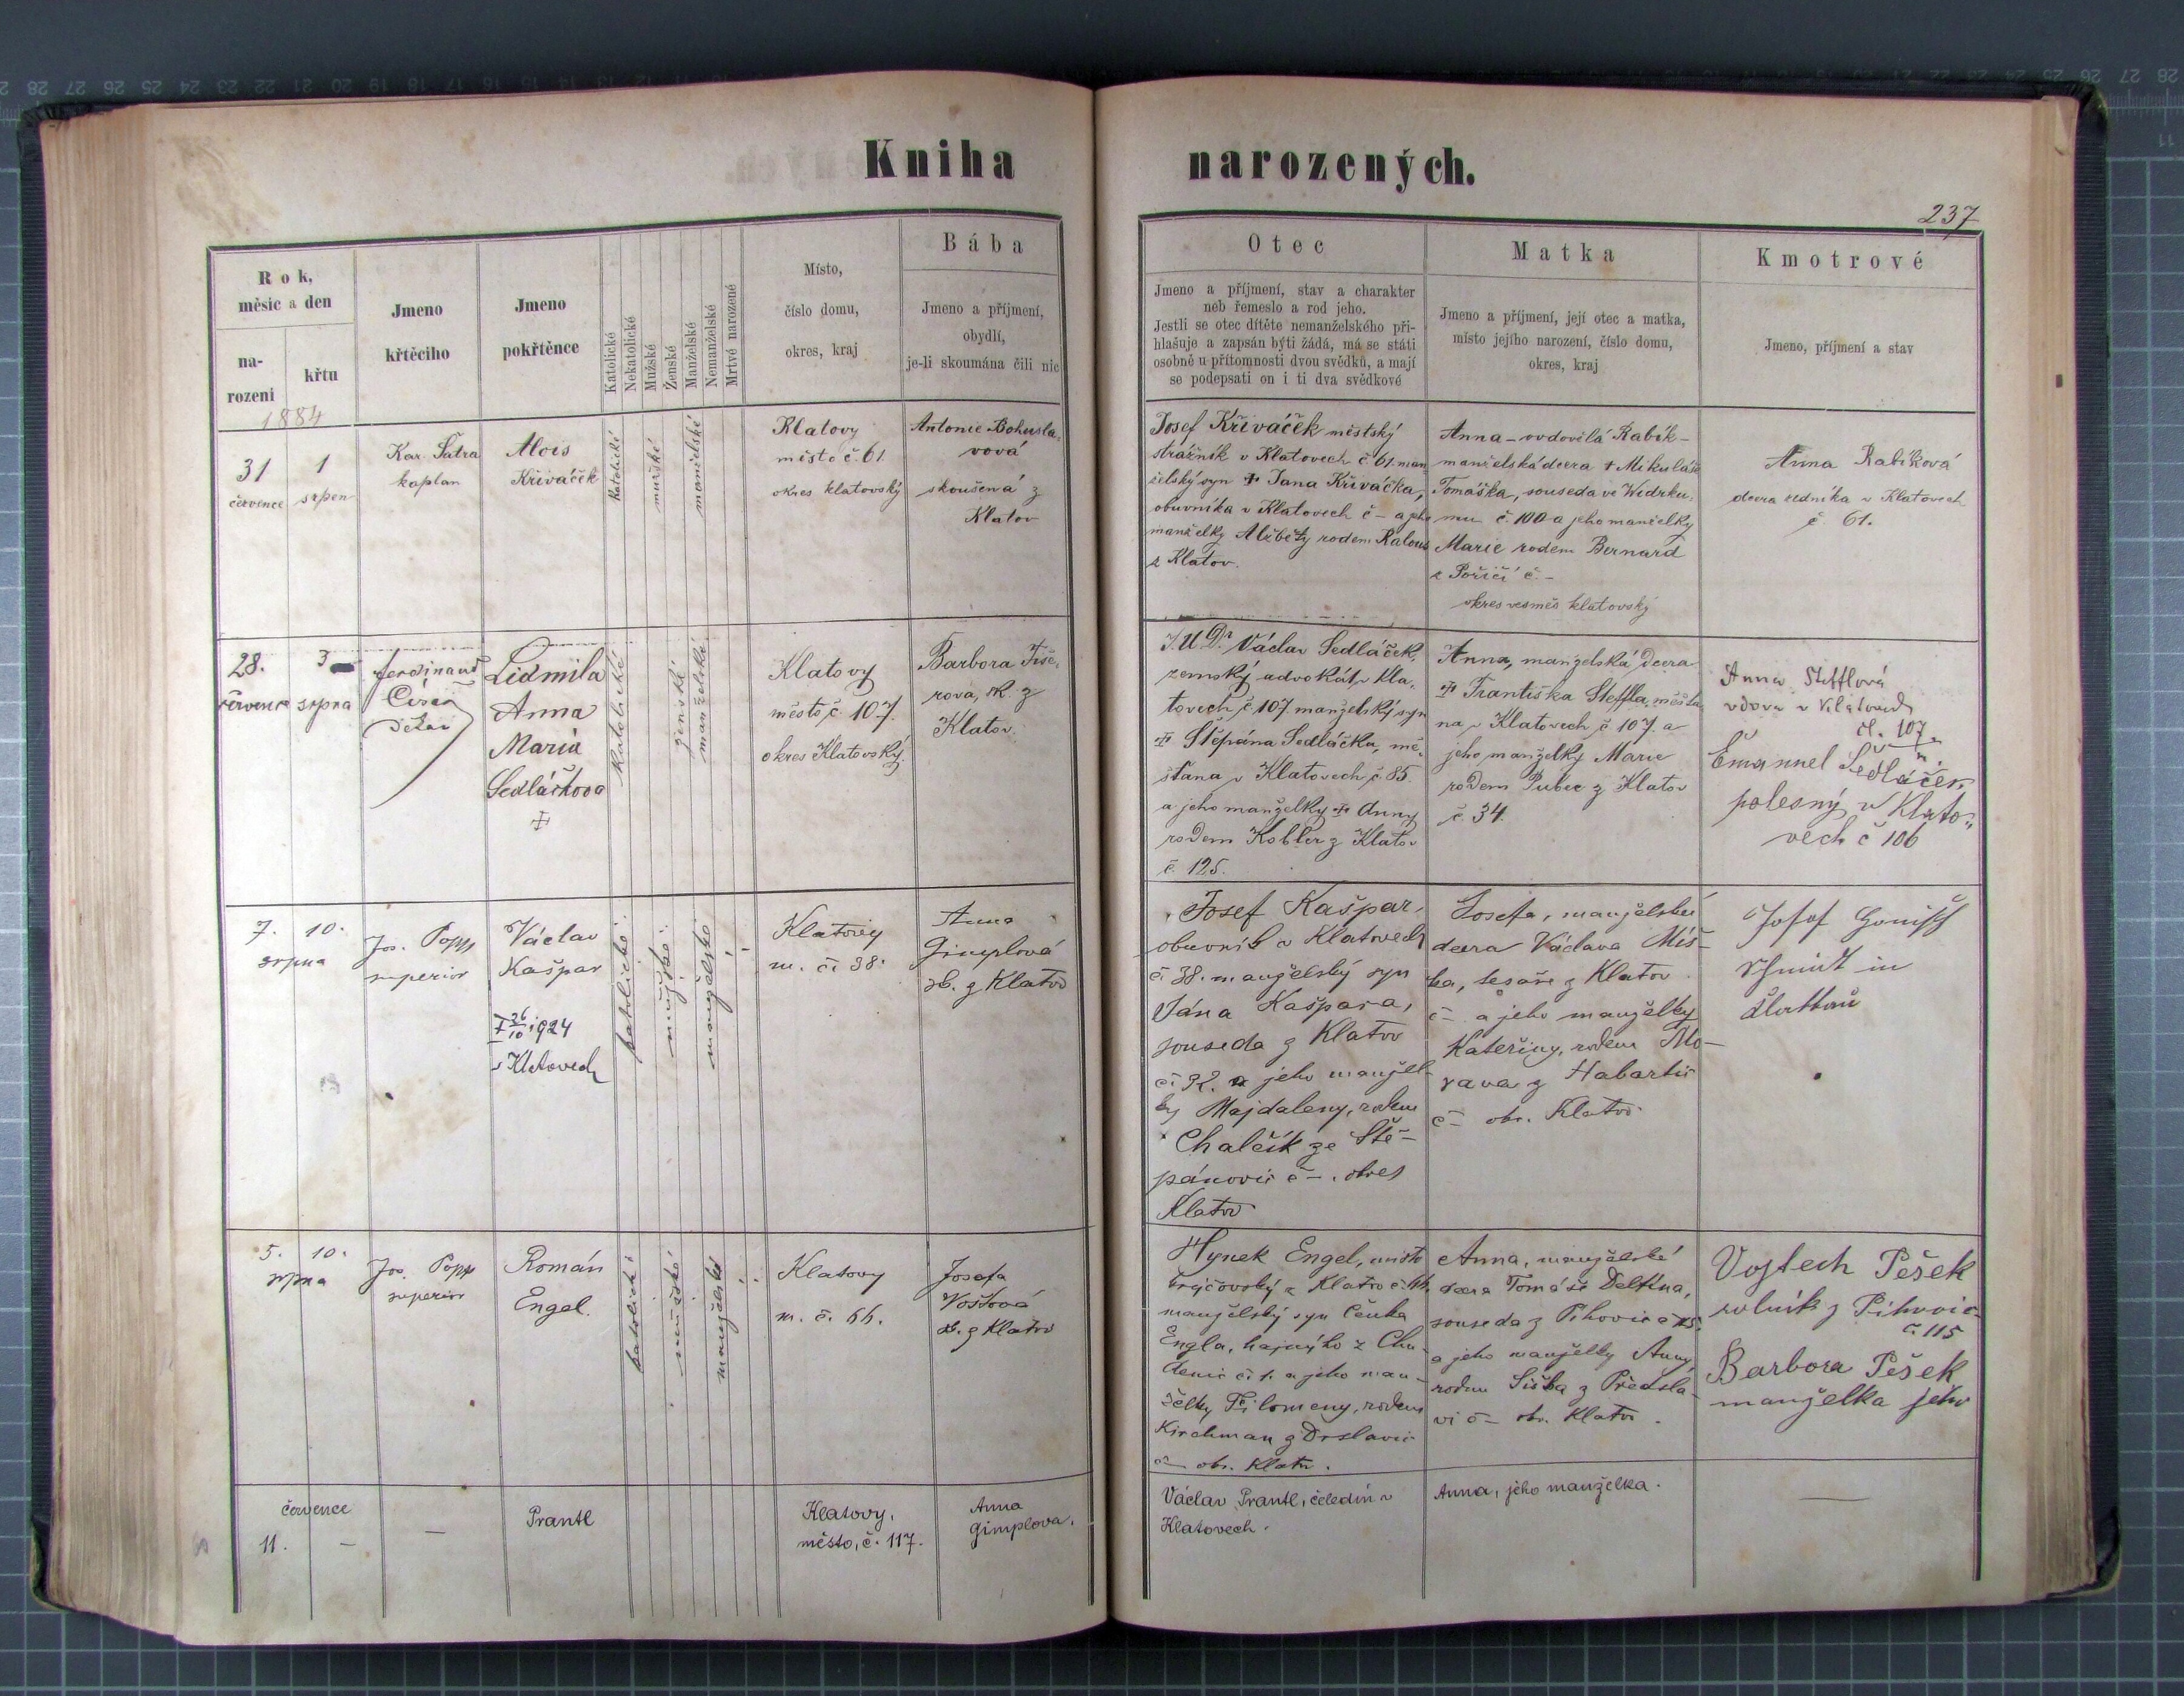 Kniha narozených.
237
Rok,
měsíc a den
na-
rozeni
křtu
Jmeno
křtěcího
Jmeno
pokřtěnce
Katolické
Nekatolické
Mužské
Ženské
Manželské
Nemanželské
Mrtvé narozené
Místo,
číslo domu,
okres, kraj
Bába
Jmeno a příjmení,
obydlí,
je-li skoumána čili nic
Otec
Jmeno a příjmení, stav a charakter
neb řemeslo a rod jeho.
Jestli se otec dítěte nemanželského při-
hlašuje a zapsán býti žádá, má se státi
osobně u přítomnosti dvou svědků, a mají
se podepsati on i ti dva svědkové
Matka
Jmeno a příjmení, její otec a matka,
místo jejího narození, číslo domu,
okres, kraj
Kmotrové
Jmeno, příjmení a stav
1884
31
července
1
srpen
Kar. Šatra
kaplan
Alois
Křiváček
katolické
mužské
manželské
Klatovy
město č. 61
okres klatovský
Antonie Bohusla-
vová
skoušená z
Klatov
Josef Křiváček městský
strážník v Klatovech č 61. man
želský syn † Jana Křiváčka,
obuvníka v Klatovech č – a jeho
manželky Alžběty rodem Kalous
z Klatov.
Anna – ovdovělá Rabík –
manželská dcera † Mikuláše
Tomáška, souseda ve Widrku-
mu č. 100 a jeho manželky
Marie rodem Bernard
z Poříčí č. –
okres vesměs klatovský
Anna Rabíková
dcera ředníka v Klatovech
č. 61.
28.
července
3
srpna
Ferdinand
děkan
Lidmila
Anna
Maria
Sedláčkova
†
katolické
ženské
manželské
Klatovy
město č. 107.
okres Klatovský.
Barbora Fiše-
rova, zk. z
Klatov.
J.U.Dr. Václav Sedláček,
zemský advokát v Kla-
tovech č 107. manželský syn
† Štěpána Sedláčka, mě-
šťana v Klatovech č. 85.
a jeho manželky † Anny
rodem Kobler z Klatov
č. 125.
Anna, manželská dcera
† Františka Steffla, měšťa-
na v Klatovech č 107. a
jeho manželky Marie
rodem Pubec z Klatov
č. 34.
Anna Stefflová
vdova v Klatovech
čl. 107
Emannel Sedláček
polesný v Klato-
vech č 106
7. 10.
srpna
Jos. Popp
superior
Václav
Kašpar
† 26/10 1924
v Klatovech
katolické
mužské
manželské
Klatovy
m. č. 38.
Anna
Gimplová
zk. z Klatov
Josef Kašpar,
obuvník v Klatovech
č. 38. manželský syn
Jána Kašpara,
souseda z Klatov
č. 92. a jeho manžel-
ky Majdaleny, rodem
Chalčík ze Ště-
pánovic č –. okres
Klatov
Josefa, manželská
dcera Václava Míš-
ka, tesaře z Klatov
č – a jeho manželky
Kateřiny, rodem Mo-
rava z Habartic
č – okr. Klatov.
Schmidt in
Klattau
5. 10.
srpna
Jos. Popp
superior
Román
Engel.
katolické
mužské
manželské
Klatovy
m. č. 66.
Josefa
Voštová
zk. z Klatov
Hynek Engel, místo
držitovský z Klatov č. 66,
manželský syn Čeňka
Engla, hajného z Chu-
denic č. 1. a jeho man-
želky Filomeny, rodem
Kirchman z Drslavic
č – okr. Klatov.
Anna, manželská
dcera Tomáše Deltína,
souseda z Pihovic č 115.
a jeho manželky Anny,
rodem Šiška z Předsla-
vi č – okr. Klatov.
Vojtech Pešek
rolník z Pihovic
č. 115
Barbora Pešek
manželka jeho
července
11. –
—
Prantl
Klatovy,
město, č. 117.
Anna
Gimplova.
Václav Prantl, čeledín v
Klatovech.
Anna, jeho manželka.
—